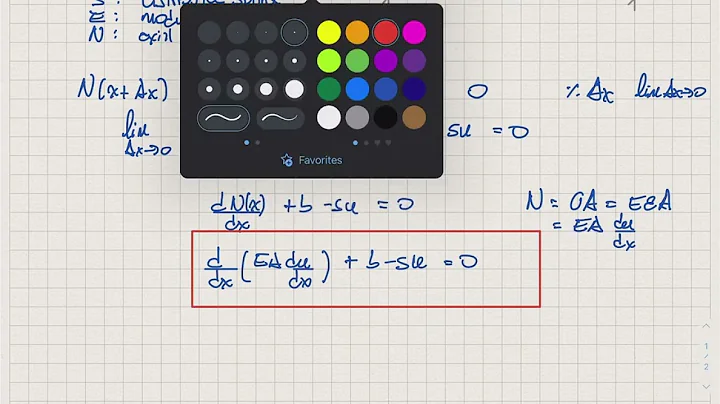 E : modu
N : axial
N(x+Δx) 0 ÷ Δx lim Δx→0
lim Δx→0 su = 0
Favorites
dN(x)/dx + b - su = 0 N = σA = EεA
= EA du/dx
d/dx (EA du/dx) + b - su = 0
1 / 2